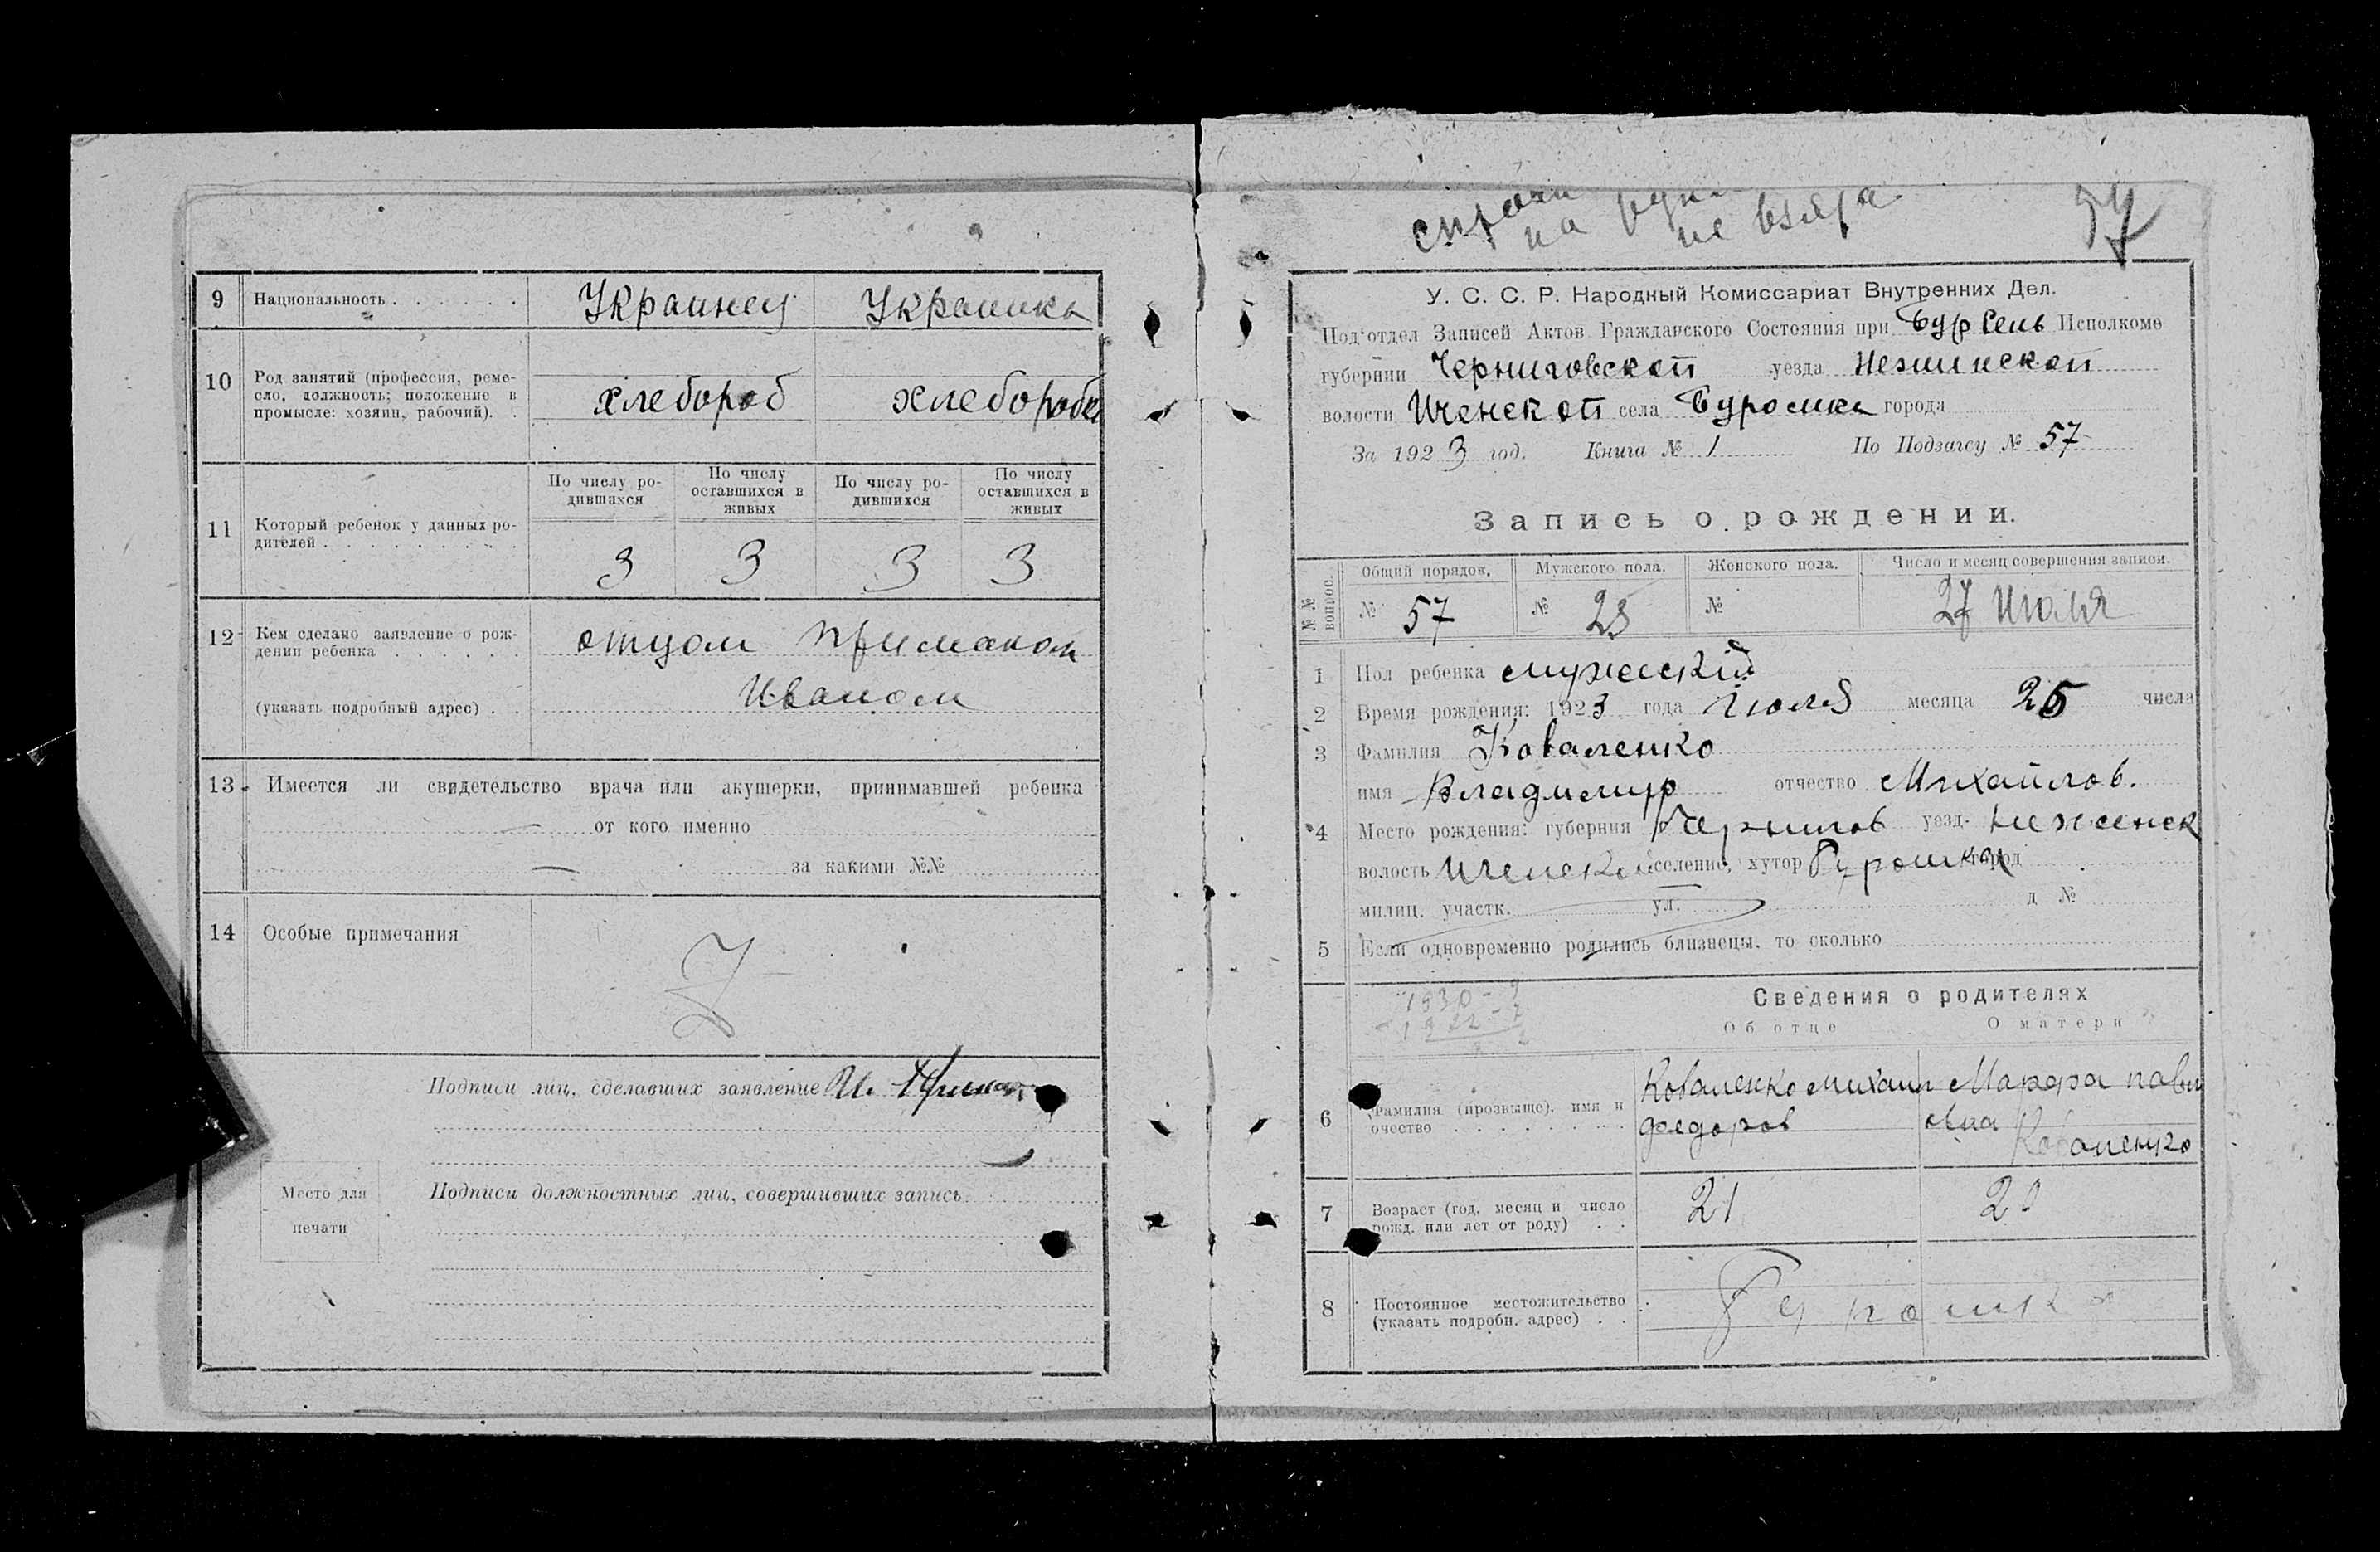 9 Национальность Украинец Украинка
10 Род занятий (профессия, реме-
сло, должность; положение в
промысле: хозяин, рабочий).
хлебороб хлебороб
По числу ро-
дившихся
По числу
оставшихся в
живых
По числу ро-
дившихся
По числу
оставшихся в
живых
11 Который ребенок у данных ро-
дителей
3 3 3 3
12 Кем сделано заявление о рож-
дении ребенка
отцом Примаком
(указать подробный адрес) Иваном
13 Имеется ли свидетельство врача или акушерки, принимавшей ребенка
— от кого именно
— за какими №№
14 Особые примечания
Подписи лиц, сделавших заявление И.
Место для
печати
Подписи должностных лиц, совершивших запись
на не
У. С. С. Р. Народный Комиссариат Внутренних Дел.
Под'отдел Записей Актов Гражданского Состояния при Исполкоме
губернии Черниговской уезда Нежинской
волости Иченской села Буромка города
За 1923 год. Книга № 1 По Подзагсу № 57
Запись о рождении.
№ № вопрос. Общий порядок. Мужского пола. Женского пола. Число и месяц совершения записи.
№ 57 № 23 № 27 Июля
1 Пол ребенка мужескій
2 Время рождения: 1923 года Июля месяца 25 числа
3 Фамилия Коваленко
имя Владимир отчество Михайлов.
4 Место рождения: губерния Чернигов уезд Неженск
волость Иченской селение, хутор Буромка город
милиц. участк. ул. д №
5 Если одновременно родились близнецы, то сколько
1930-9
1922-7
Сведения о родителях
Об отце О матери
6 Фамилия (прозвище), имя и
очество
Коваленко Михаил
федоров
Павл
овна
Коваленко
7 Возраст (год, месяц и число
рожд. или лет от роду)
21
8 Постоянное местожительство
(указать подробн. адрес)
Буромка